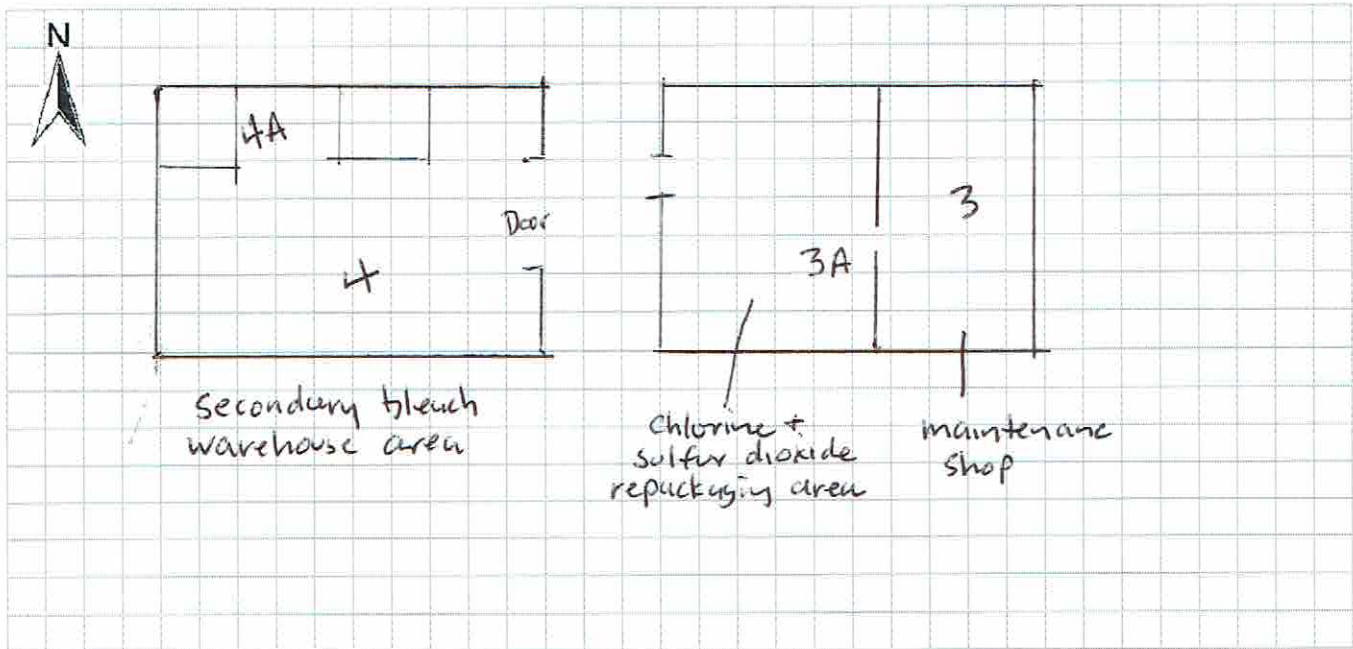 N
4A
Door
4
3A
3
Secondary bleach
warehouse area
Chlorine +
sulfur dioxide
repackaging area
maintenance
shop